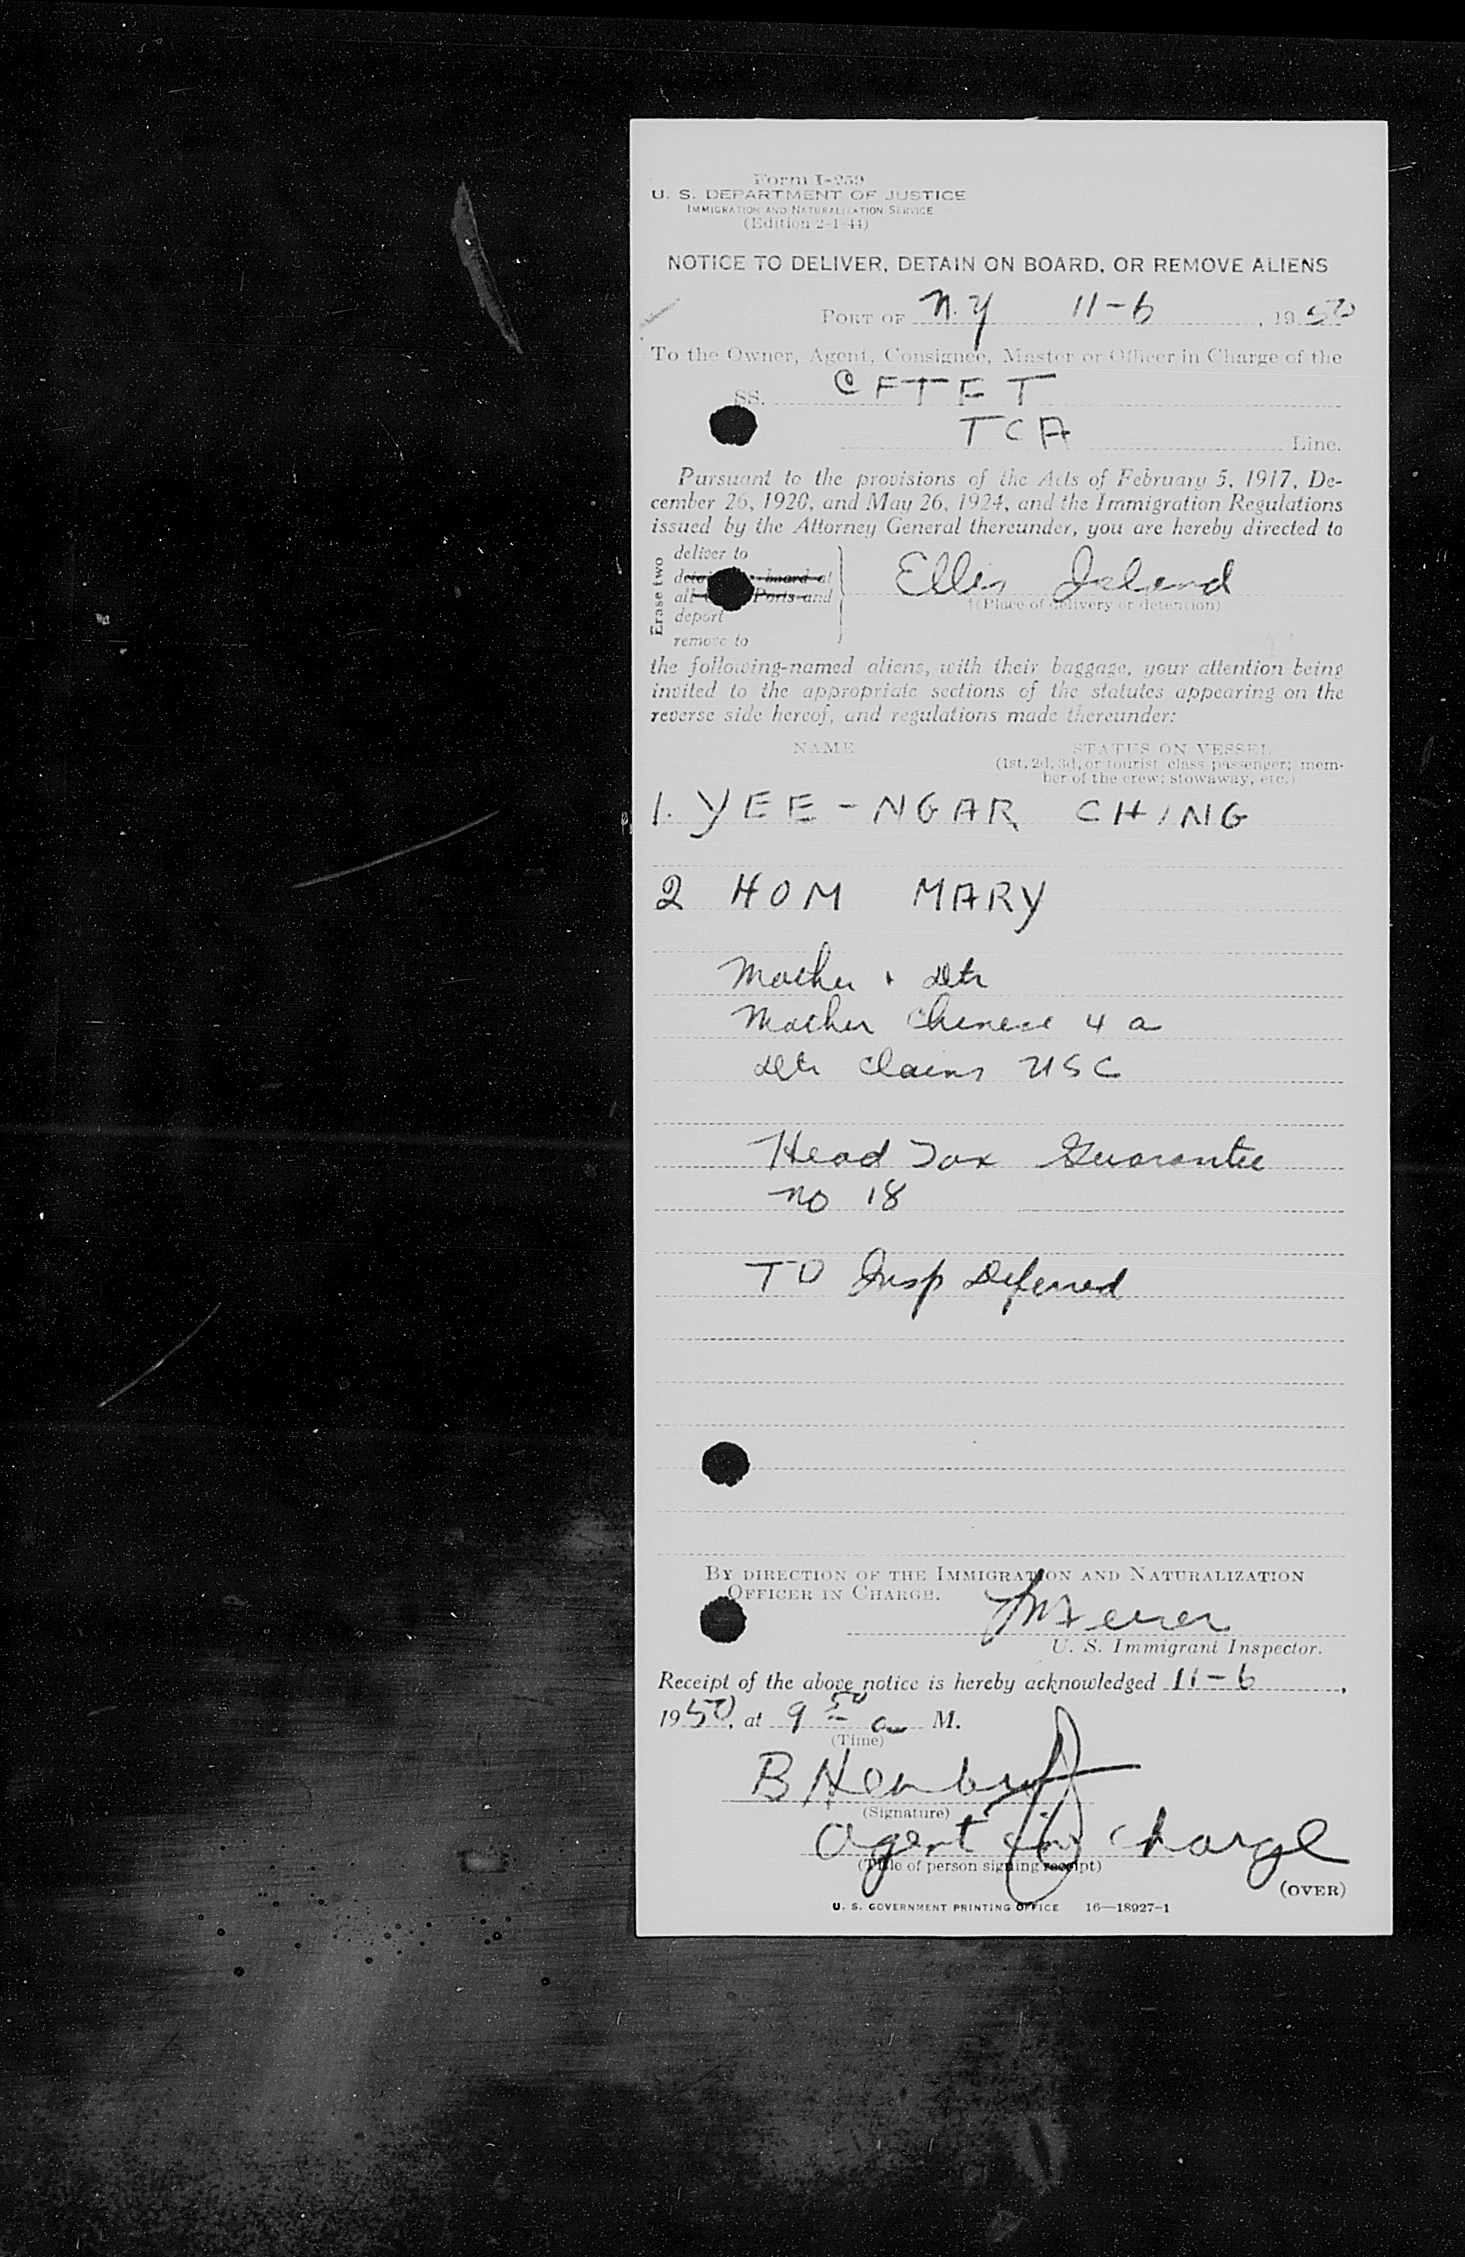 Form I-259
U. S. DEPARTMENT OF JUSTICE
IMMIGRATION AND NATURALIZATION SERVICE
(Edition 2-1-44)
NOTICE TO DELIVER, DETAIN ON BOARD, OR REMOVE ALIENS
PORT OF N.Y 11-6, 1950
To the Owner, Agent, Consignee, Master or Officer in Charge of the
SS. CFTET
TCA Line.
Pursuant to the provisions of the Acts of February 5, 1917, De-
cember 26, 1920, and May 26, 1924, and the Immigration Regulations
issued by the Attorney General thereunder, you are hereby directed to
Erase two
deliver to
board at
all Ports and
deport
remove to
Ellis Island
(Place of delivery or detention)
the following-named aliens, with their baggage, your attention being
invited to the appropriate sections of the statutes appearing on the
reverse side hereof, and regulations made thereunder:
NAME STATUS ON VESSEL
(1st, 2d, 3d, or tourist class passenger; mem-
ber of the crew; stowaway, etc.)
1. YEE-NGAR CHING
2 HOM MARY
Mother + Dtr
Mother Chinese 4 a
Dtr claims USC
Head Tax Guarantee
no 18
TD Insp Deferred
BY DIRECTION OF THE IMMIGRATION AND NATURALIZATION
OFFICER IN CHARGE.
U. S. Immigrant Inspector.
Receipt of the above notice is hereby acknowledged 11-6,
1950, at 9 50 a M.
(Time)
B
(Signature)
Agent in charge
(Title of person signing receipt)
(OVER)
U. S. GOVERNMENT PRINTING OFFICE 16—18927-1